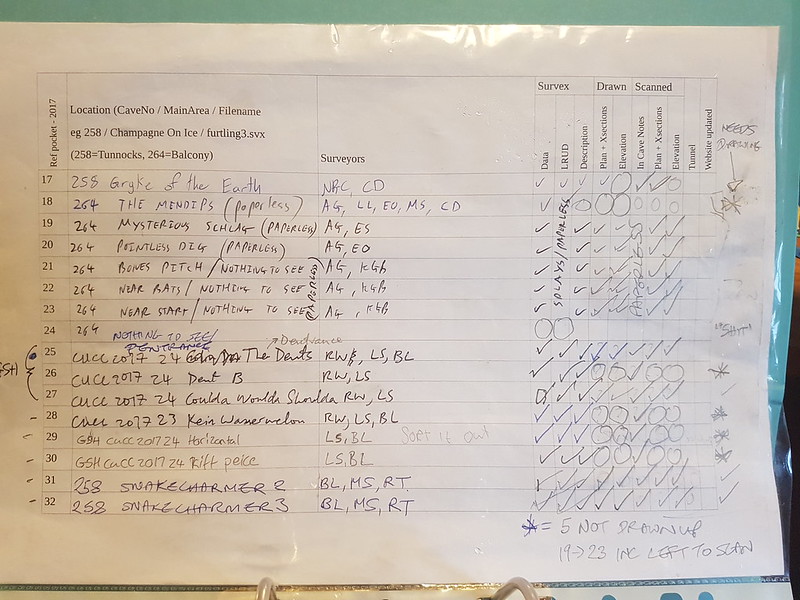 Ref pocket - 2017
Location (CaveNo / MainArea / Filename
eg 258 / Champagne On Ice / furtling3.svx
(258=Tunnocks, 264=Balcony)
Surveyors
Survex Drawn Scanned
Data LRUD Description Plan + Xsections Elevation In Cave Notes Plan + Xsections Elevation Tunnel Website updated
NEEDS
DRAWING
17 258 Gryke of the Earth NRC, CD
18 264 THE MENDIPS (paperless) AG, LL, EO, MS, CD
19 264 MYSTERIOUS SCHLAG (PAPERLESS) AG, ES
20 264 POINTLESS DIG (PAPERLESS) AG, EO
21 264 BONES PITCH / NOTHING TO SEE AG, KGB
22 264 NEAR BATS / NOTHING TO SEE AG, KGB
23 264 NEAR START / NOTHING TO SEE AG, KGB
(PAPERLESS)
SPLAYS/PAPERLESS
PAPERLESS
24 264 NOTHING TO SEE/
ENTRANCE
"SHIT"
25 CUCC 2017 24 The Dents RW, LS, BL
26 CUCC 2017 24 Dent B RW, LS
27 CUCC 2017 24 Coulda Woulda Shoulda RW, LS
28 CUCC 2017 23 Kein Wassermelon RW, LS, BL
29 GSH CUCC 2017 24 Horizontal LS, BL Sort it out
30 GSH CUCC 2017 24 Rift peice LS, BL
31 258 SNAKECHARMER 2 BL, MS, RT
32 258 SNAKECHARMER 3 BL, MS, RT
* = 5 NOT DRAWN UP
19→23 INC LEFT TO SCAN